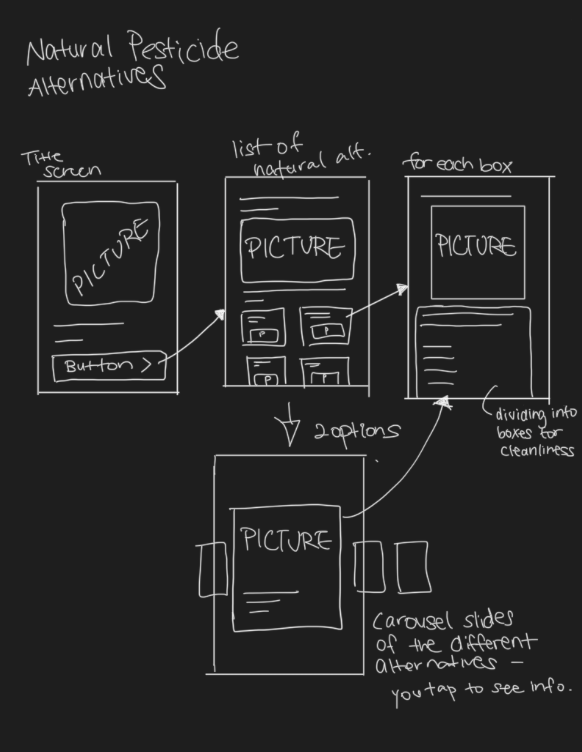 Natural Pesticide
Alternatives
Title
screen
PICTURE
Button >
list of
natural alt.
PICTURE
P
P
P
T
for each box
PICTURE
dividing into
boxes for
cleanliness
2 options
PICTURE
Carousel slides
of the different
alternatives –
you tap to see info.